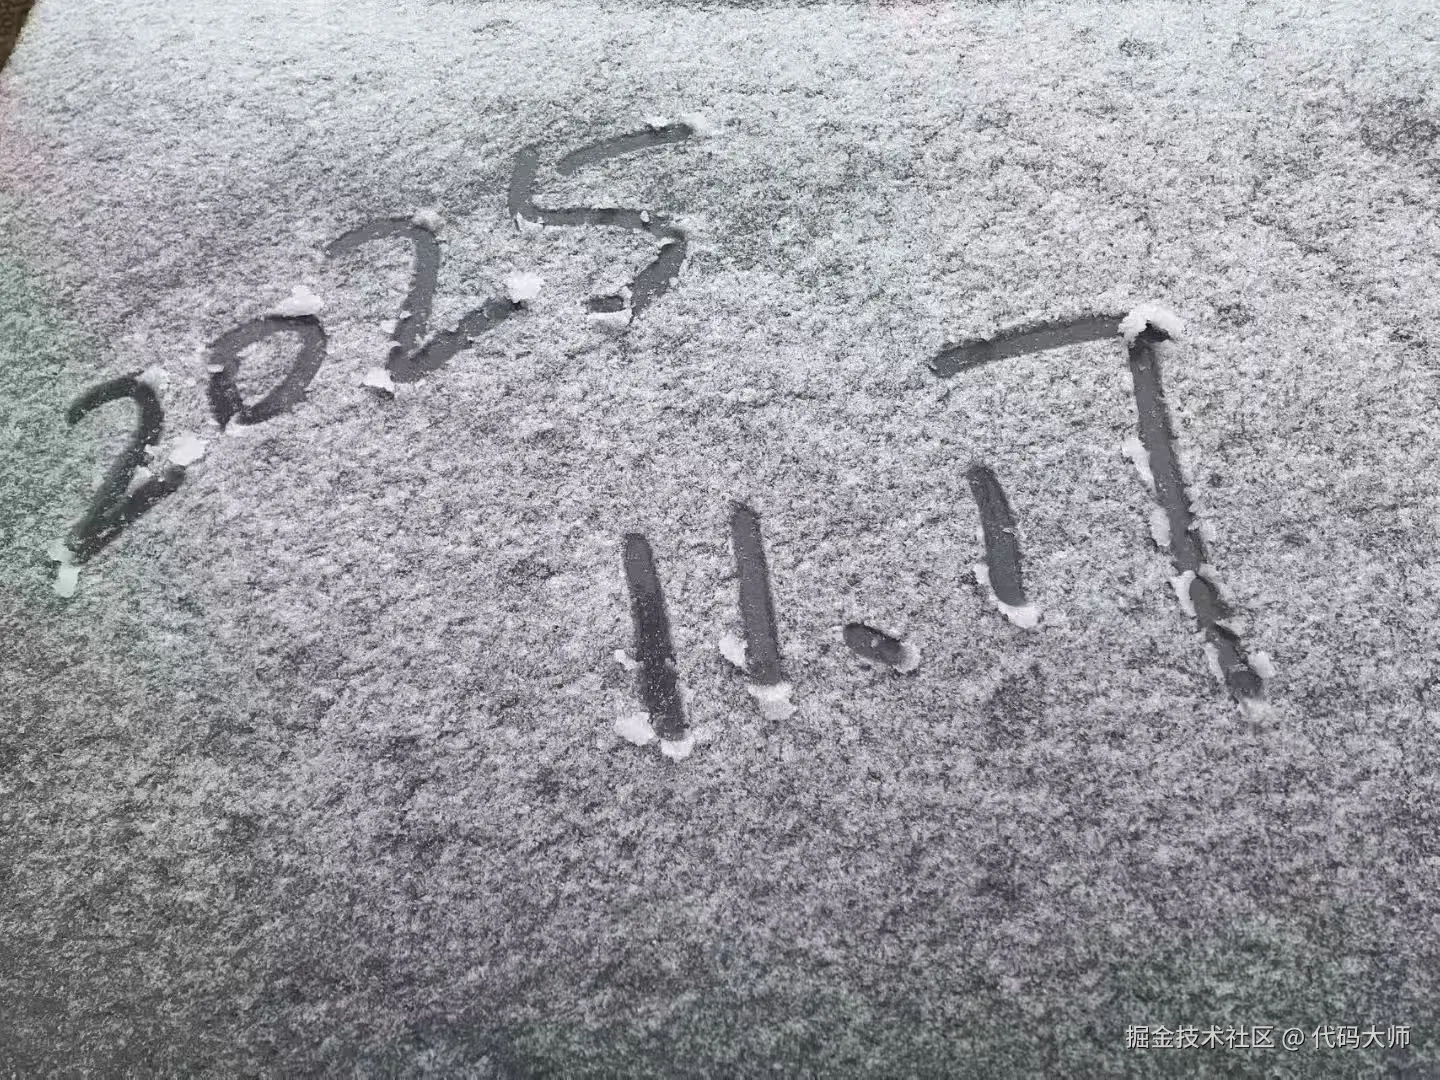 2025
11.17
掘金技术社区 @ 代码大师